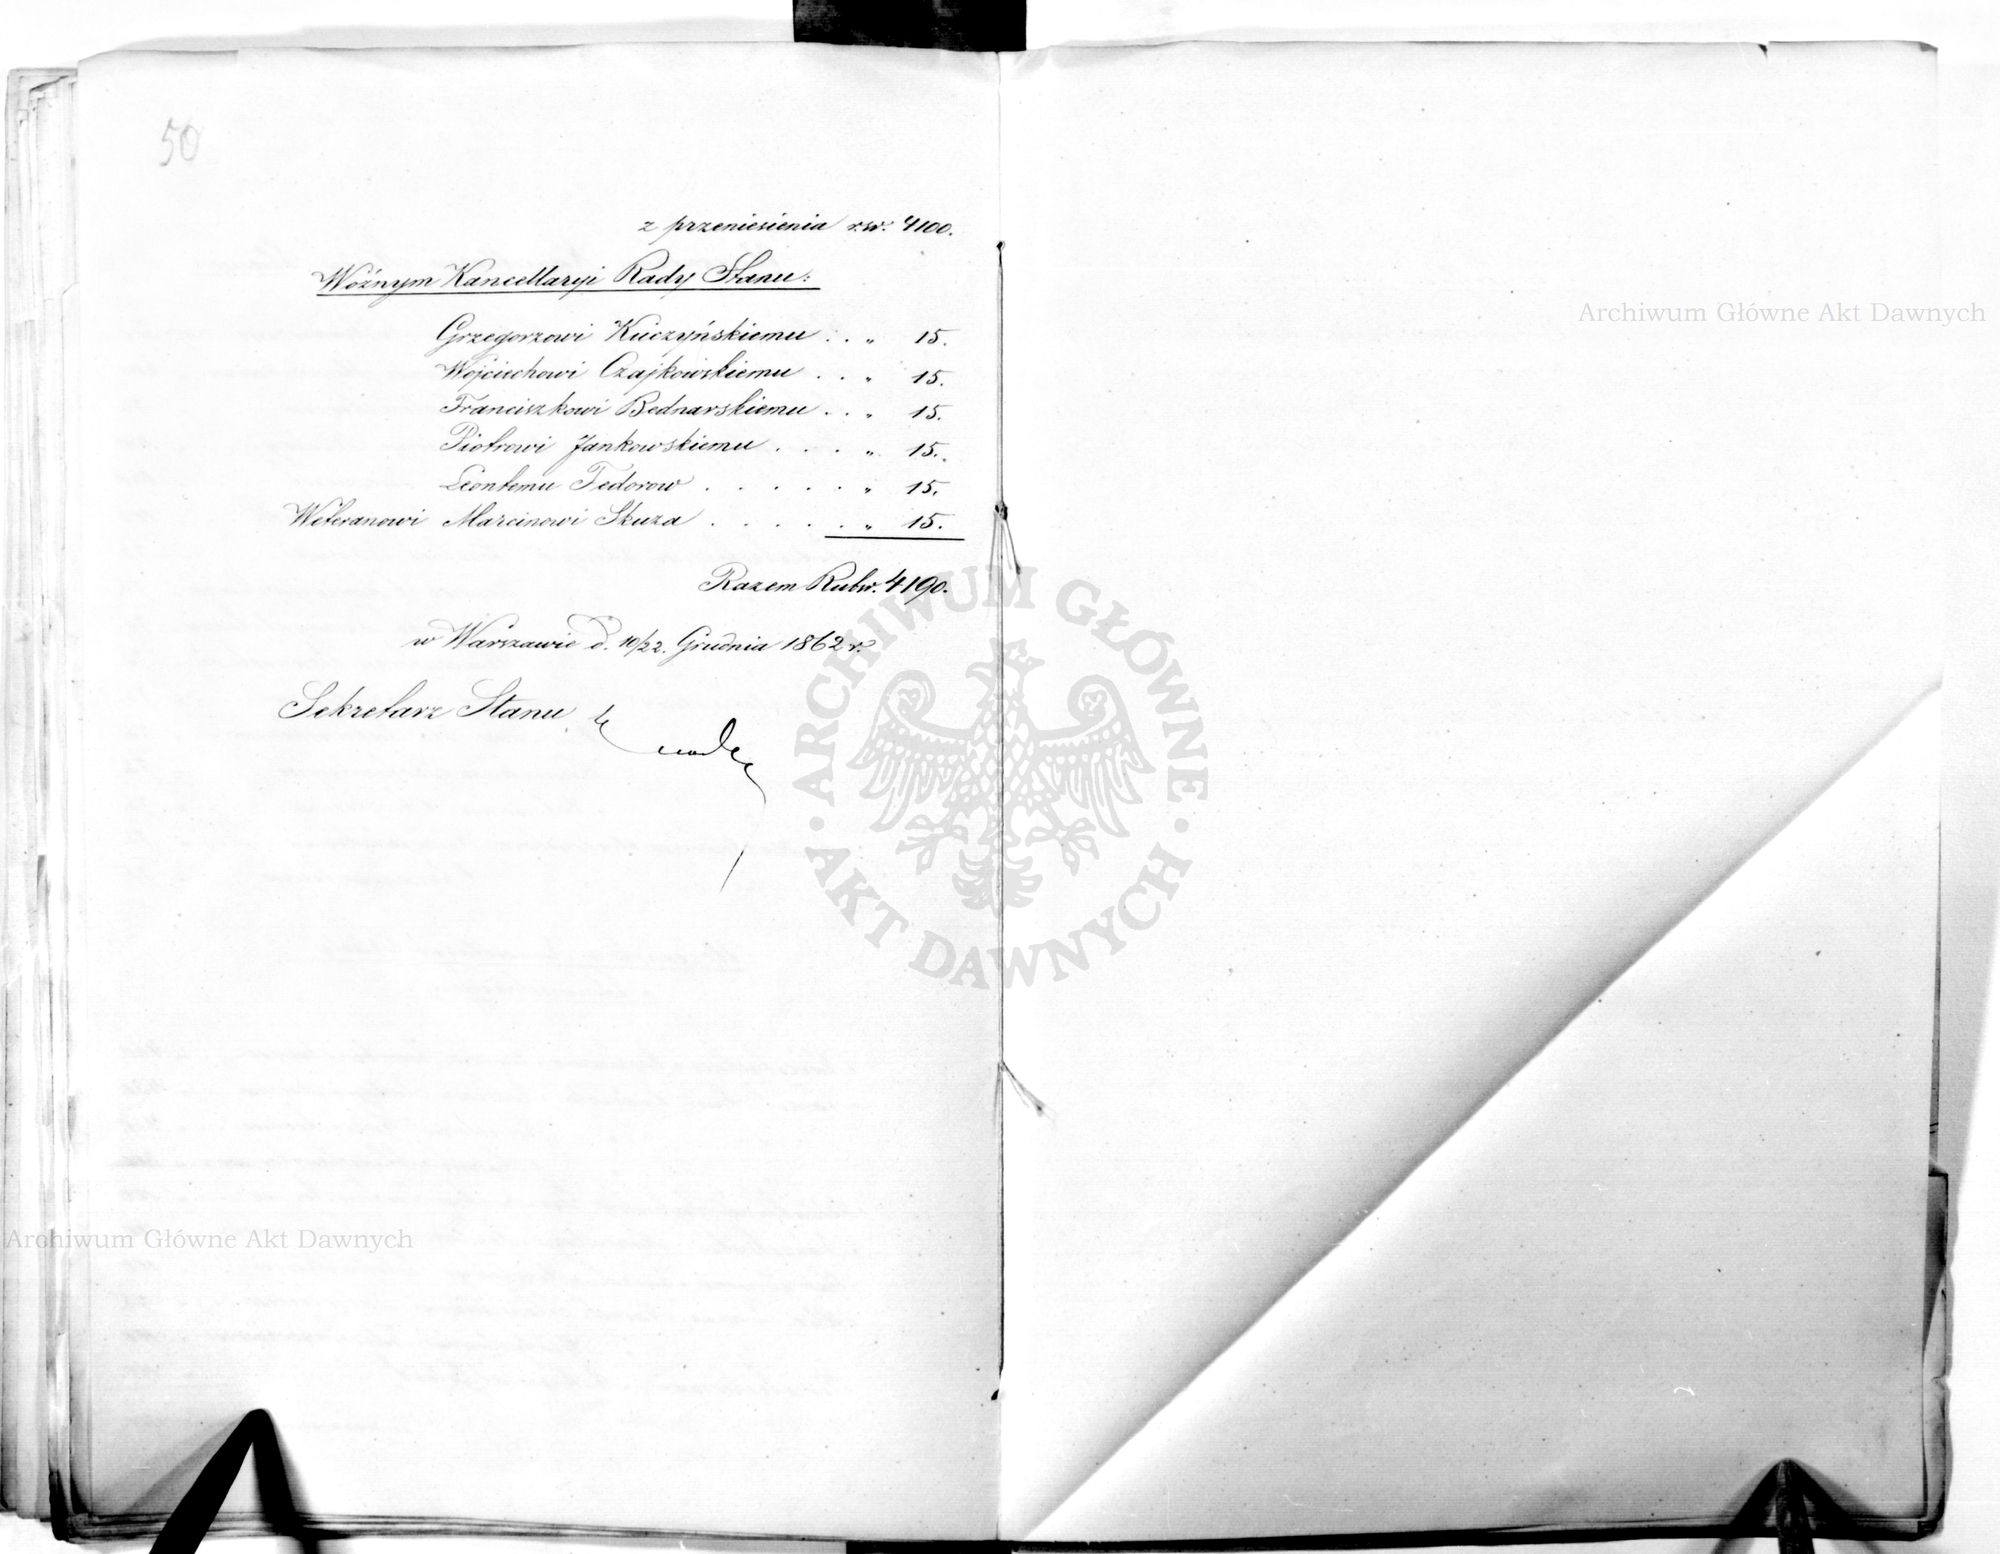 50
z przeniesienia r.sr. 4100.
Woźnym Kancellaryi Rady Stanu:
Grzegorzowi Kuczyńskiemu . . " 15.
Wojciechowi Czajkowskiemu . . " 15.
Franciszkowi Bednarskiemu . . " 15.
Piotrowi Jankowskiemu . . . " 15.
Leontemu Fedorow . . . . . " 15.
Weteranowi Marcinowi Skuza . . . . . " 15.
Razem Rubsr. 4190.
w Warszawie d. 10/22. Grudnia 1862 r.
Sekretarz Stanu
Archiwum Główne Akt Dawnych
ARCHIWUM GŁÓWNE · AKT DAWNYCH ·
Archiwum Główne Akt Dawnych